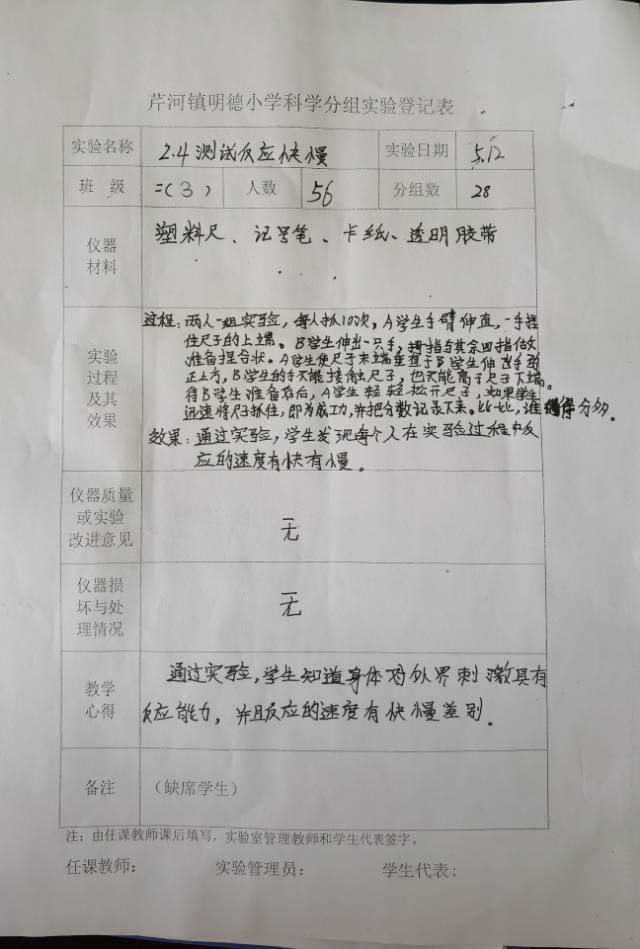 芹河镇明德小学科学分组实验登记表
实验名称 2.4 测试反应快慢 实验日期 5.12
班 级 二(3) 人数 56 分组数 28
仪器材料 塑料尺、记号笔、卡纸、透明胶带
实验过程及其效果
过程:两人一组实验,每人抓10次,A学生手臂伸直,一手捏
住尺子的上端。B学生伸出一只手,拇指与其余四指做好
准备捏合状。A学生使尺子末端垂直于B学生伸出手的
正上方,B学生的手不能接触尺子,也不能高于尺子下端。
待B学生准备好后,A学生轻轻松开尺子,如果学生
迅速将尺子抓住,即为成功,并把分数记录下来。比一比,谁得分多。
效果:通过实验,学生发现每个人在实验过程中反
应的速度有快有慢。
仪器质量或实验改进意见 无
仪器损坏与处理情况 无
教学心得
通过实验,学生知道身体对外界刺激具有
反应能力,并且反应的速度有快慢差别。
备注 (缺席学生)
注:由任课教师课后填写,实验室管理教师和学生代表签字。
任课教师: 实验管理员: 学生代表: